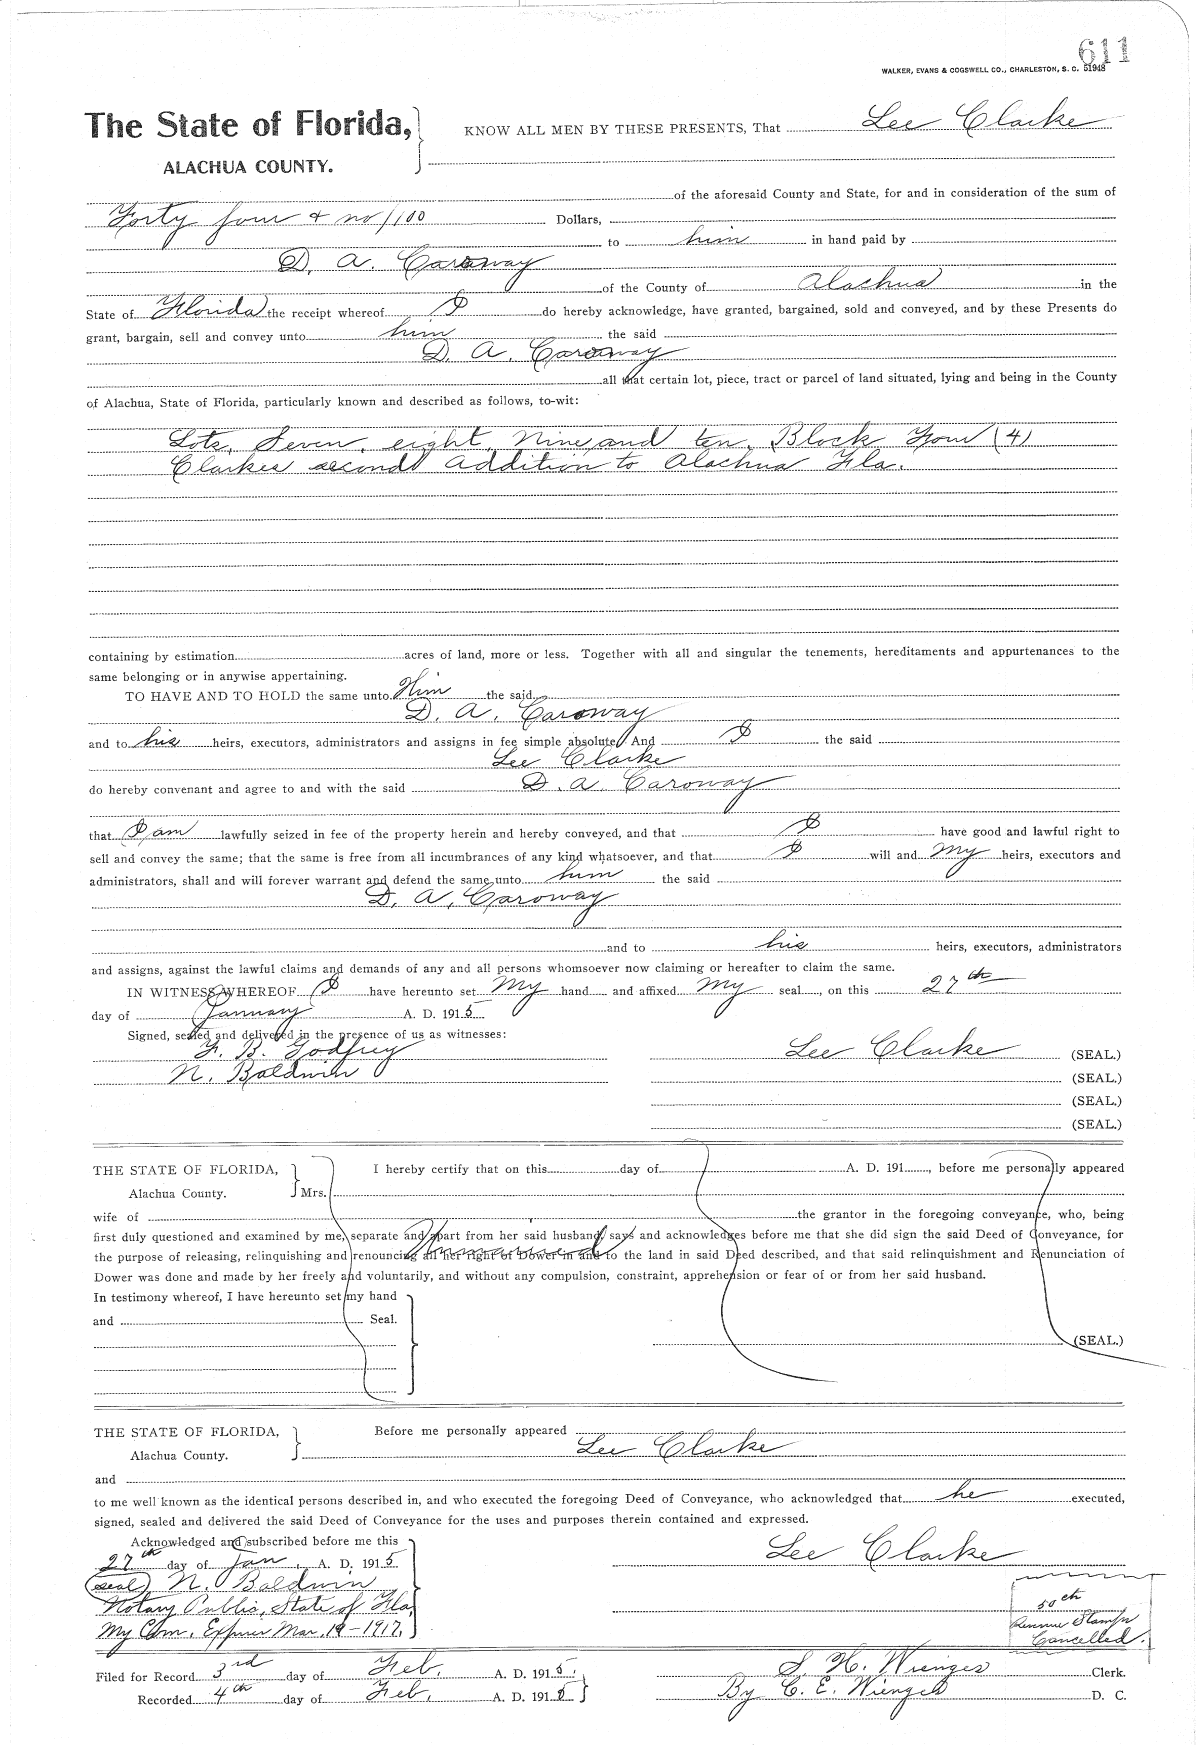 611
WALKER, EVANS & COGSWELL CO., CHARLESTON, S. C. 51948
The State of Florida, KNOW ALL MEN BY THESE PRESENTS, That Lee Clarke
ALACHUA COUNTY.
of the aforesaid County and State, for and in consideration of the sum of
Forty four & no/100 Dollars,
to him in hand paid by
D. A. Caroway
of the County of Alachua in the
State of Florida the receipt whereof I do hereby acknowledge, have granted, bargained, sold and conveyed, and by these Presents do
grant, bargain, sell and convey unto him the said
D. A. Caroway
all that certain lot, piece, tract or parcel of land situated, lying and being in the County
of Alachua, State of Florida, particularly known and described as follows, to-wit:
Lots, Seven, eight, Nine and ten, Block Four (4)
Clarkes second addition to Alachua Fla.
containing by estimation acres of land, more or less. Together with all and singular the tenements, hereditaments and appurtenances to the
same belonging or in anywise appertaining.
TO HAVE AND TO HOLD the same unto Him the said
D. A. Caroway
and to his heirs, executors, administrators and assigns in fee simple absolute. And I the said
Lee Clarke
do hereby convenant and agree to and with the said D. A. Caroway
that I am lawfully seized in fee of the property herein and hereby conveyed, and that I have good and lawful right to
sell and convey the same; that the same is free from all incumbrances of any kind whatsoever, and that I will and My heirs, executors and
administrators, shall and will forever warrant and defend the same unto him the said
D. A. Caroway
and to his heirs, executors, administrators
and assigns, against the lawful claims and demands of any and all persons whomsoever now claiming or hereafter to claim the same.
IN WITNESS WHEREOF I have hereunto set My hand and affixed My seal, on this 27th
day of January A. D. 1915
Signed, sealed and delivered in the presence of us as witnesses:
F. B. Godfrey Lee Clarke (SEAL.)
N. Baldwin (SEAL.)
(SEAL.)
(SEAL.)
THE STATE OF FLORIDA, I hereby certify that on this day of A. D. 191 , before me personally appeared
Alachua County. Mrs.
wife of the grantor in the foregoing conveyance, who, being
first duly questioned and examined by me, separate and apart from her said husband, says and acknowledges before me that she did sign the said Deed of Conveyance, for
Unmarried
the purpose of releasing, relinquishing and renouncing all her right of dower in and to the land in said Deed described, and that said relinquishment and Renunciation of
Dower was done and made by her freely and voluntarily, and without any compulsion, constraint, apprehension or fear of or from her said husband.
In testimony whereof, I have hereunto set my hand
and Seal.
(SEAL.)
THE STATE OF FLORIDA, Before me personally appeared
Alachua County. Lee Clarke
and
to me well known as the identical persons described in, and who executed the foregoing Deed of Conveyance, who acknowledged that he executed,
signed, sealed and delivered the said Deed of Conveyance for the uses and purposes therein contained and expressed.
Acknowledged and subscribed before me this
27th day of Jan, A. D. 1915 Lee Clarke
(seal) N. Baldwin
Notary Public, State of Fla,
My Com. Expires Mar. 19-1917.
50ct
Revenue Stamps
Cancelled.
Filed for Record 3rd day of Feb, A. D. 1915. S. H. Wienges Clerk.
Recorded 4th day of Feb, A. D. 1915 By C. E. Wienges D. C.